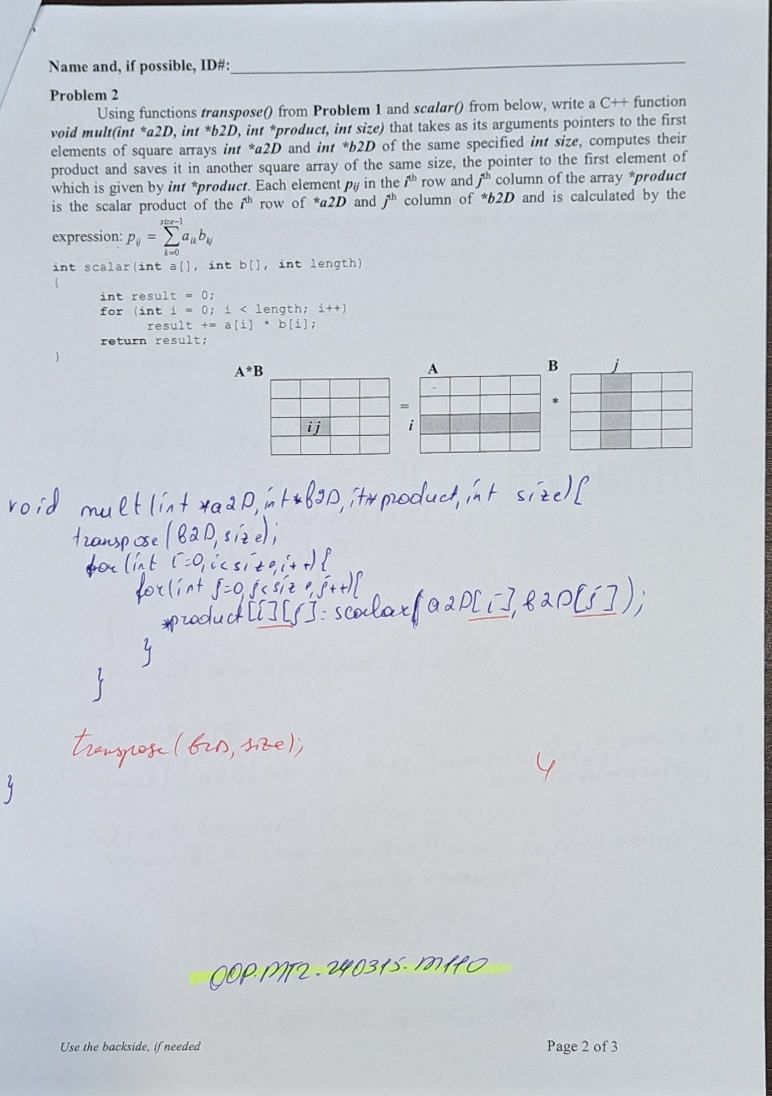 Name and, if possible, ID#:
Problem 2
Using functions transpose() from Problem 1 and scalar() from below, write a C++ function
void mult(int *a2D, int *b2D, int *product, int size) that takes as its arguments pointers to the first
elements of square arrays int *a2D and int *b2D of the same specified int size, computes their
product and saves it in another square array of the same size, the pointer to the first element of
which is given by int *product. Each element pij in the ith row and jth column of the array *product
is the scalar product of the ith row of *a2D and jth column of *b2D and is calculated by the
expression: pij = size-1 ∑ k=0 aik bkj
int scalar(int a[], int b[], int length)
{
int result = 0;
for (int i = 0; i < length; i++)
result += a[i] * b[i];
return result;
}
A*B = A * B j
i j i
void mult(int *a2D, int*b2D, it* product, int size){
transpose(B2D, size);
for(int i=0, i<size, i++){
for(int j=0, j<size, j++){
*product[i][j] = scalar(a2D[i], b2D[j]);
}
}
transpose(b2D, size);
4
}
OOP.MT2.240315.M110
Use the backside, if needed Page 2 of 3